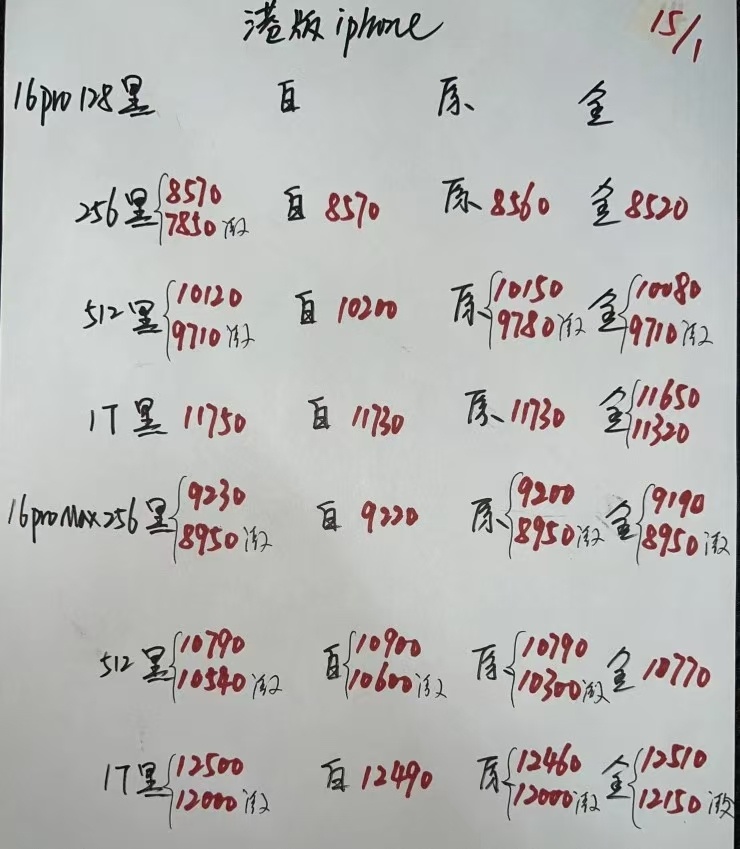 港版iphone 15/1
16pro 128黑 白 原 金
256黑 8570 7850激 白 8570 原 8560 金 8520
512黑 10120 9710激 白 10200 原 10150 9780激 金 10080 9710激
1T 黑 11750 白 11730 原 11730 金 11650 11320
16proMax256黑 9230 8950激 白 9220 原 9200 8950激 金 9190 8950激
512黑 10790 10540激 白 10900 10600激 原 10790 10300激 金 10770
1T黑 12500 12000激 白 12490 原 12460 12000激 金 12510 12150激